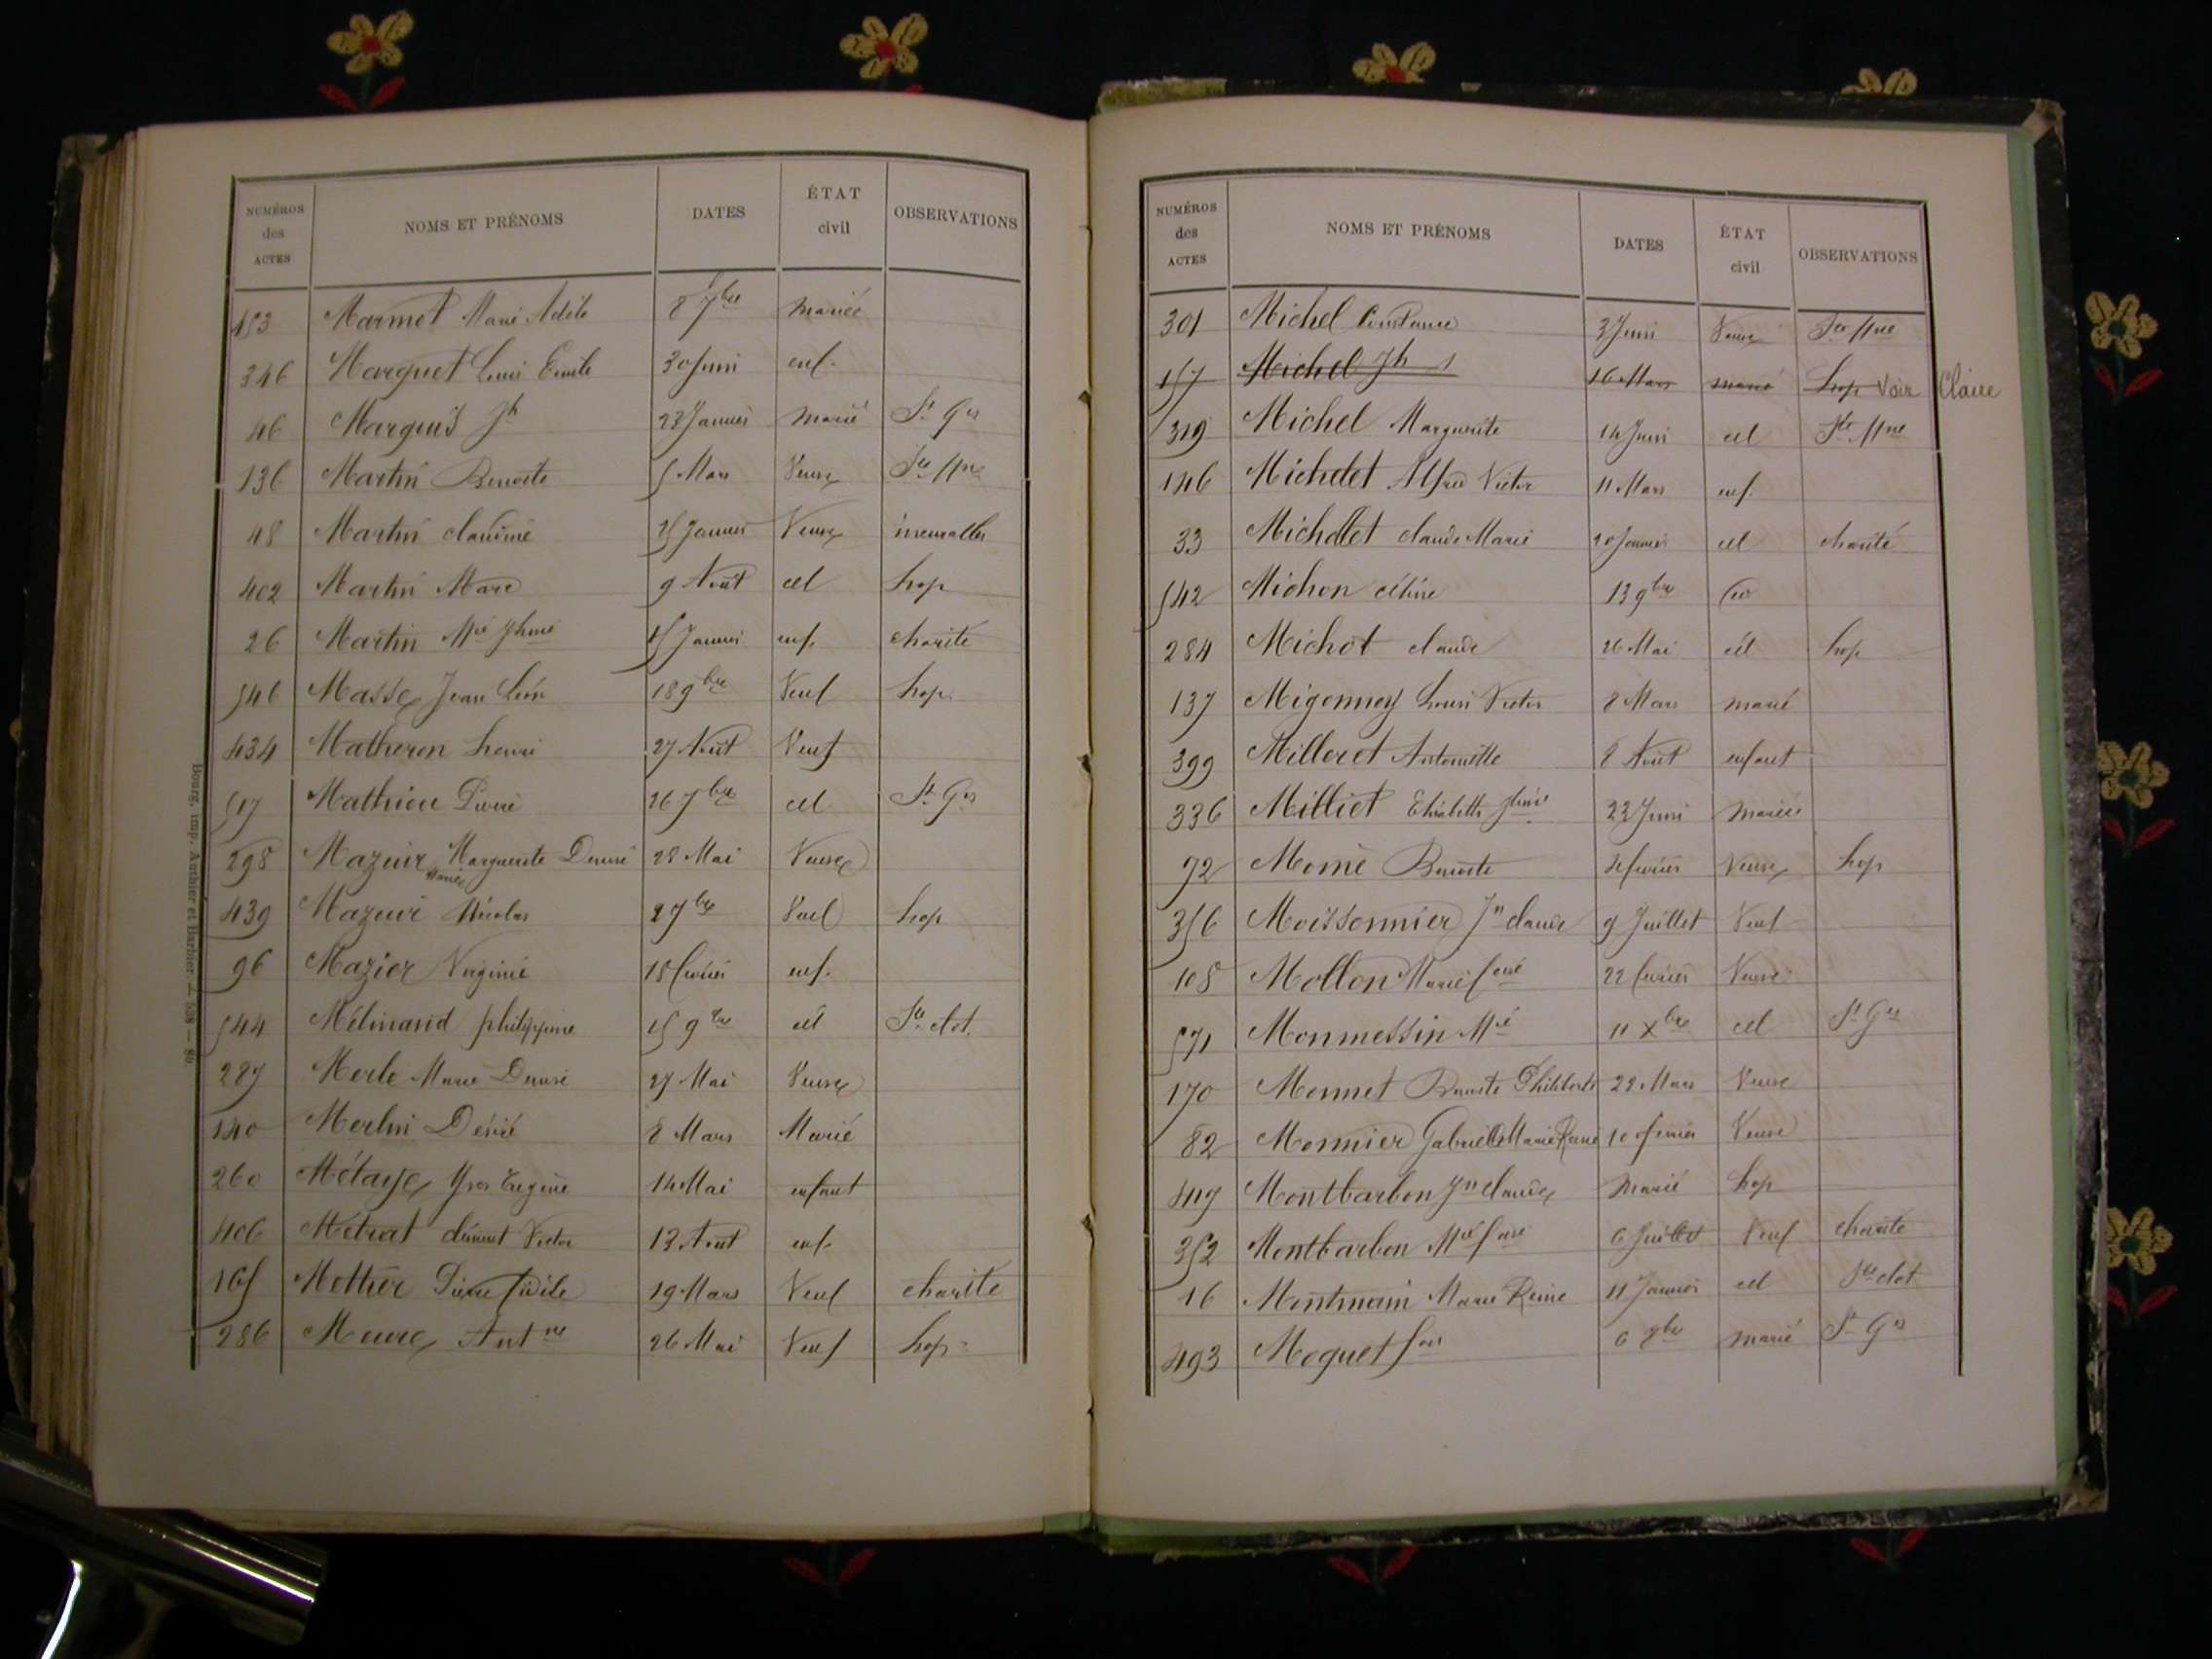 NUMÉROS des ACTES | NOMS ET PRÉNOMS | DATES | ÉTAT civil | OBSERVATIONS
453 Marmet Marie Adèle 8 7bre mariée
346 Marguet Louis Emile 30 Juin enf.
46 Marguis Jh 23 Janvier marié St Ges
136 Martin Benoite 5 Mars Veuve Ste Mne
48 Martin claudine 25 Janvier Veuve incurables
402 Martin Marc 9 Août cel hop
26 Martin Mie Jhine 15 Janvier enf. charité
546 Masse Jean Léon 18 9bre Veuf hop.
434 Matheron henri 27 Août Veuf
517 Mathieu Pierre 26 7bre cel St Ges
298 Mazuir Marguerite Denise 28 Mai Veuve
439 Mazuir Nicolas 2 7bre Veuf hop
96 Mazier Virginie 18 février enf.
544 Mélinand philippine 15 9bre cel Ste clot.
287 Merle Marie Denise 27 Mai Veuve
140 Merlin Désiré 8 Mars Marié
260 Métaye Yves Eugène 14 Mai enfant
406 Métrat clément Victor 13 Août enf.
165 Mettier Pierre fidile 19 Mars Veuf charité
286 Meure Antne 26 Mai Veuf hop.
Bourg, imp. Authier et Barbier. — 538 — 86.
NUMÉROS des ACTES | NOMS ET PRÉNOMS | DATES | ÉTAT civil | OBSERVATIONS
301 Michel Constance 3 Juin Veuve Ste Mne
157 Michel Jh 16 Mars marié hop Voir Claire
319 Michel Marguerite 14 Juin cel Ste Mne
146 Michelet Alfred Victor 11 Mars enf.
33 Michellet claude Marie 20 Janvier cel charité
542 Michon céline 13 9bre
284 Michot claude 26 Mai cél hop
137 Migonney Louis Victor 8 Mars marié
399 Milleret Antoinette 8 Août enfant
336 Milliet Elisabeth Jhine 23 Juin mariée
72 Momie Benoite février Veuve hop
356 Moissonnier Jn claude 9 Juillet Veuf
108 Mollon Marie foise 22 février Veuve
571 Monmessin Mie 11 Xbre cel St Ges
170 Monnet Benoite Philiberte 22 Mars Veuve
82 Monnier Gabrielle Marie Reine 10 février Veuve
417 Montbarbon Jn claude marié hop
352 Montbarbon Mie foise 6 Juillet Veuf charité
16 Montmain Marie Reine 11 Janvier cel Ste clot
493 Moguet fois 6 8bre marié St Ges